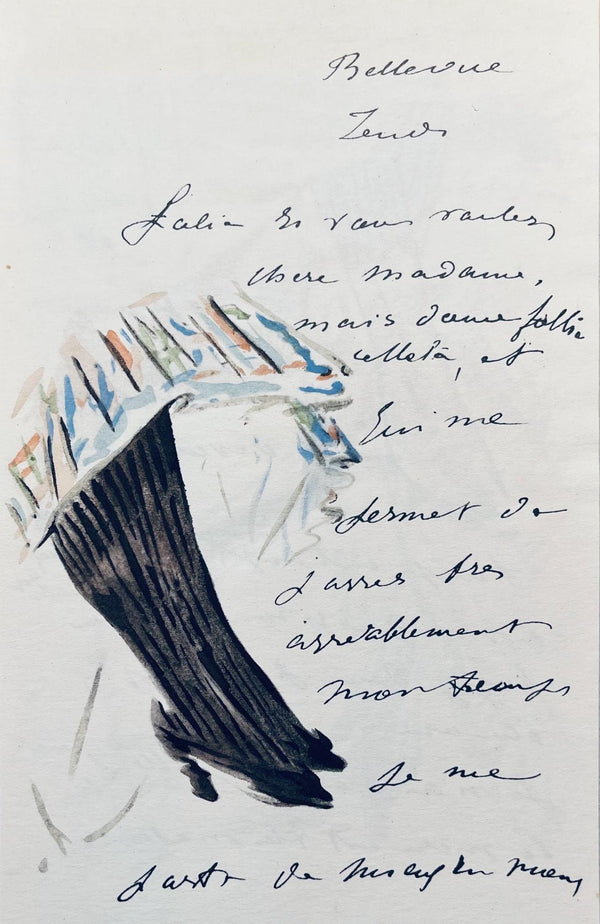 Bellevue
Jeudi
Folie si vous voulez,
chère madame,
mais douce folie
celle-là, et
qui me
permet de
passer très
agréablement
mon temps
Je me
porte de mieux en mieux